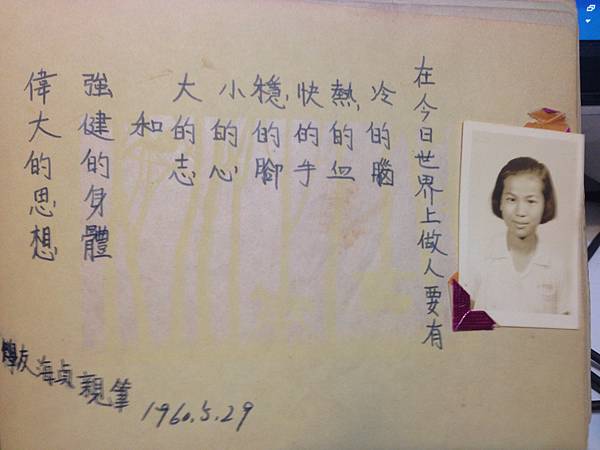 在今日世界上做人要有
冷的腦
熱,的血
快的手
穩,的腳
小的心
大的志
和
強健的身體
偉大的思想
學友海貞親筆
1960.5.29